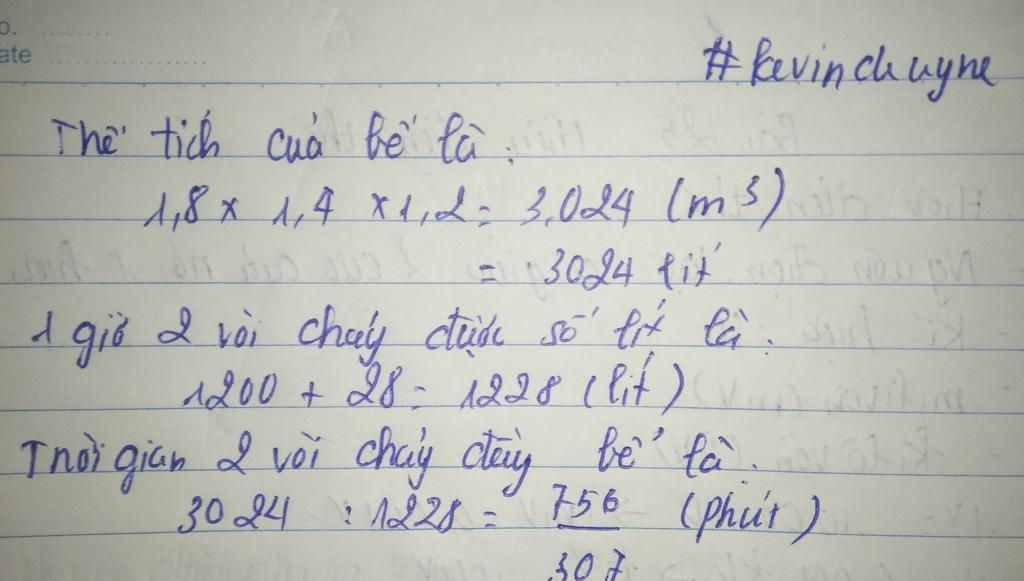 o.
ate
#kevinchuyne
Thể tích của bể là:
1,8 x 1,4 x 1,2 = 3,024 (m³)
= 3024 lít
1 giờ 2 vòi chảy được số lít là:
1200 + 28 = 1228 (lít)
Thời gian 2 vòi chảy đầy bể là:
3024 : 1228 = 756/307 (phút)